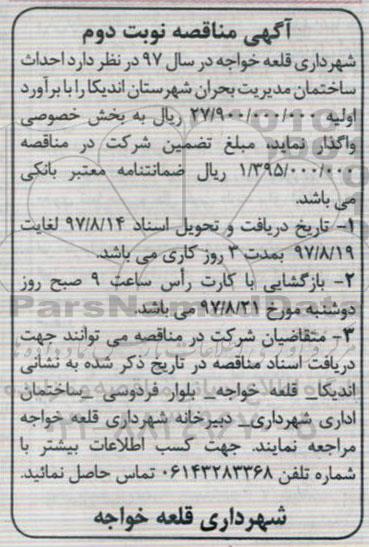 آگهی مناقصه نوبت دوم
شهرداری قلعه خواجه در سال ۹۷ در نظر دارد احداث
ساختمان مدیریت بحران شهرستان اندیکا را با برآورد
اولیه ۲۷/۹۰۰/۰۰۰/۰۰۰ ریال به بخش خصوصی
واگذار نماید، مبلغ تضمین شرکت در مناقصه
۱/۳۹۵/۰۰۰/۰۰۰ ریال ضمانتنامه معتبر بانکی
می باشد.
۱- تاریخ دریافت و تحویل اسناد ۹۷/۸/۱۴ لغایت
۹۷/۸/۱۹ بمدت ۳ روز کاری می باشد.
۲- بازگشایی با کارت رأس ساعت ۹ صبح روز
دوشنبه مورخ ۹۷/۸/۲۱ می باشد.
ParsNamadData
۳- متقاضیان شرکت در مناقصه می توانند جهت
دریافت اسناد مناقصه در تاریخ ذکر شده به نشانی
اندیکا_ قلعه خواجه_ بلوار فردوسی _ساختمان
اداری شهرداری_ دبیرخانه شهرداری قلعه خواجه
مراجعه نمایند. جهت کسب اطلاعات بیشتر با
شماره تلفن ۰۶۱۴۳۲۸۳۳۶۸ تماس حاصل نمائید.
شهرداری قلعه خواجه